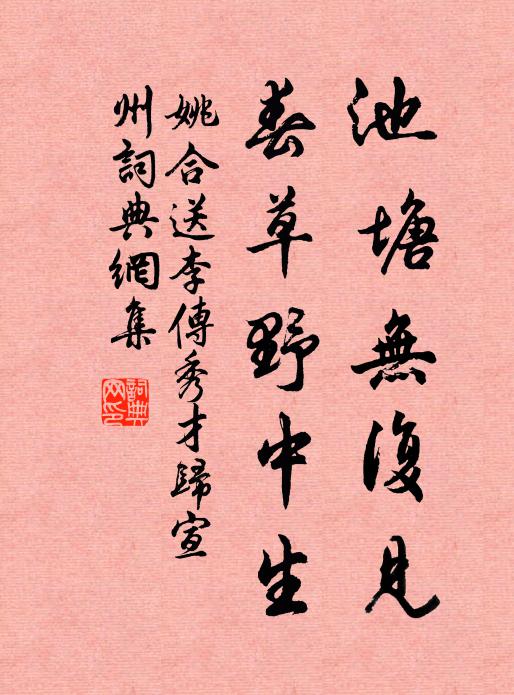 池塘無復見
春草野中生
姚合送李傳秀才歸宣
州詞典網集
詞典
网印